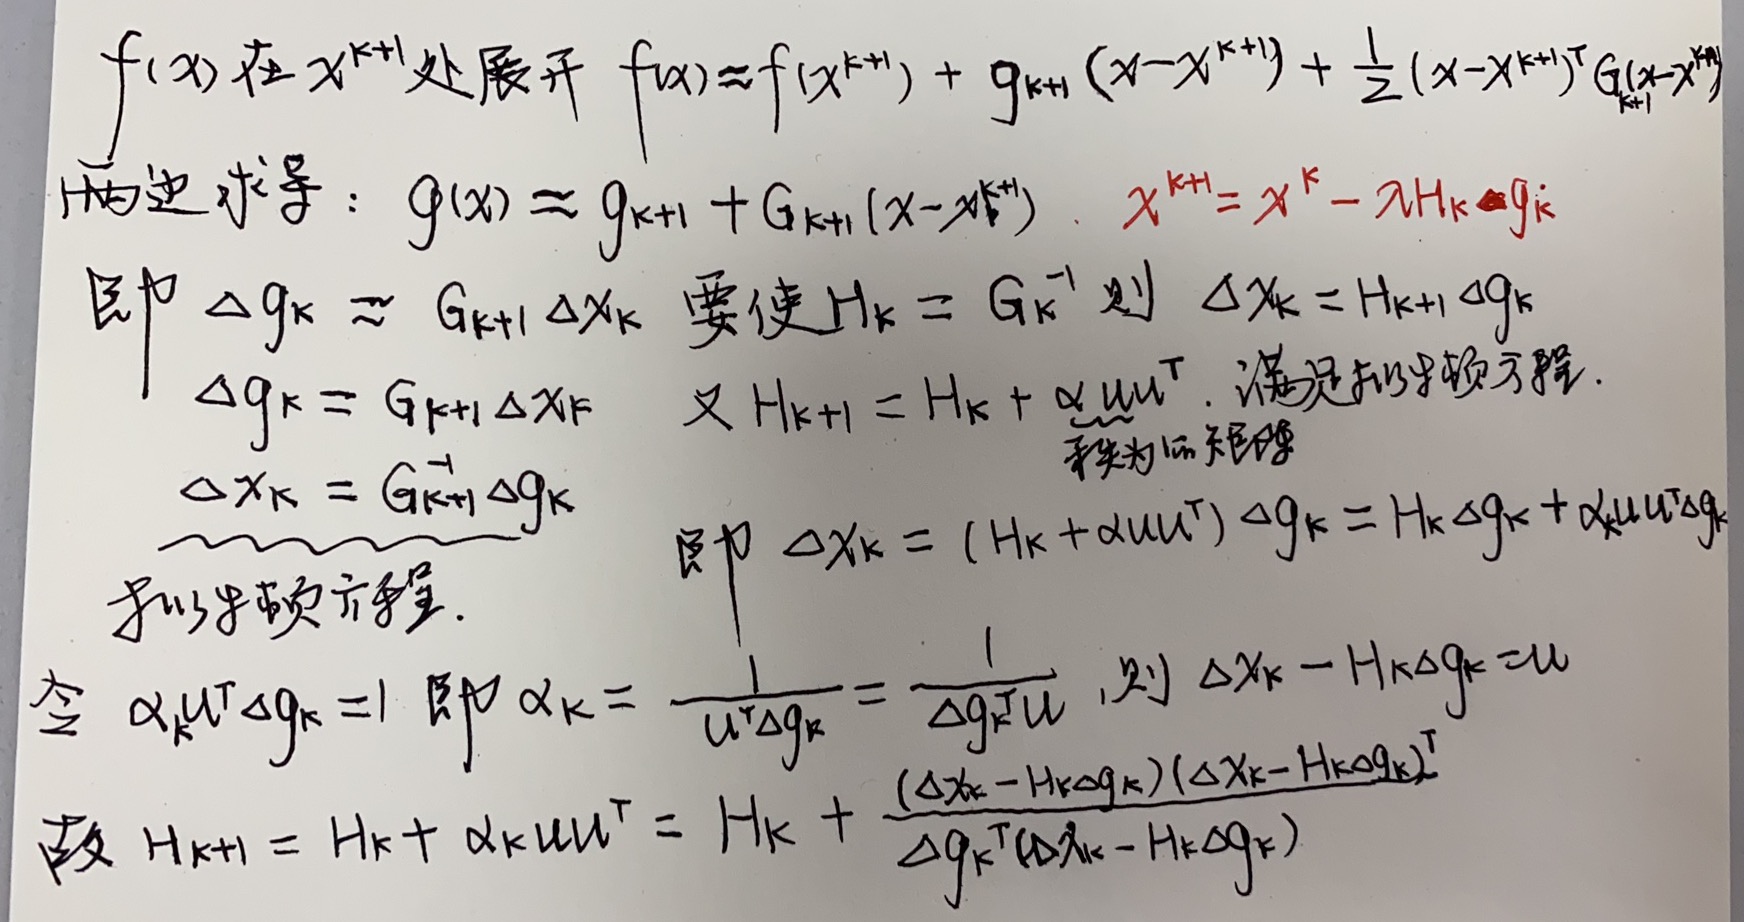 f(x)在x^{k+1}处展开 f(x)≈f(x^{k+1}) + g_{k+1}(x-x^{k+1}) + \frac{1}{2}(x-x^{k+1})^T G_{k+1}(x-x^{k+1})
两边求导: g(x) ≈ g_{k+1} + G_{k+1}(x-x^{k+1}). x^{k+1} = x^k - λH_k g_k
即 Δg_k ≈ G_{k+1}Δx_k 要使H_k = G_k^{-1} 则 Δx_k = H_{k+1}Δg_k
Δg_k = G_{k+1}Δx_k 又 H_{k+1} = H_k + αuu^T. 满足拟牛顿方程.
秩为1的矩阵
Δx_k = G_{k+1}^{-1}Δg_k
即 Δx_k = (H_k + αuu^T)Δg_k = H_kΔg_k + α_k uu^TΔg_k
拟牛顿方程.
令 α_k u^TΔg_k = 1 即 α_k = \frac{1}{u^TΔg_k} = \frac{1}{Δg_k^T u}, 则 Δx_k - H_kΔg_k = u
故 H_{k+1} = H_k + α_k uu^T = H_k + \frac{(Δx_k - H_kΔg_k)(Δx_k - H_kΔg_k)^T}{Δg_k^T(Δx_k - H_kΔg_k)}